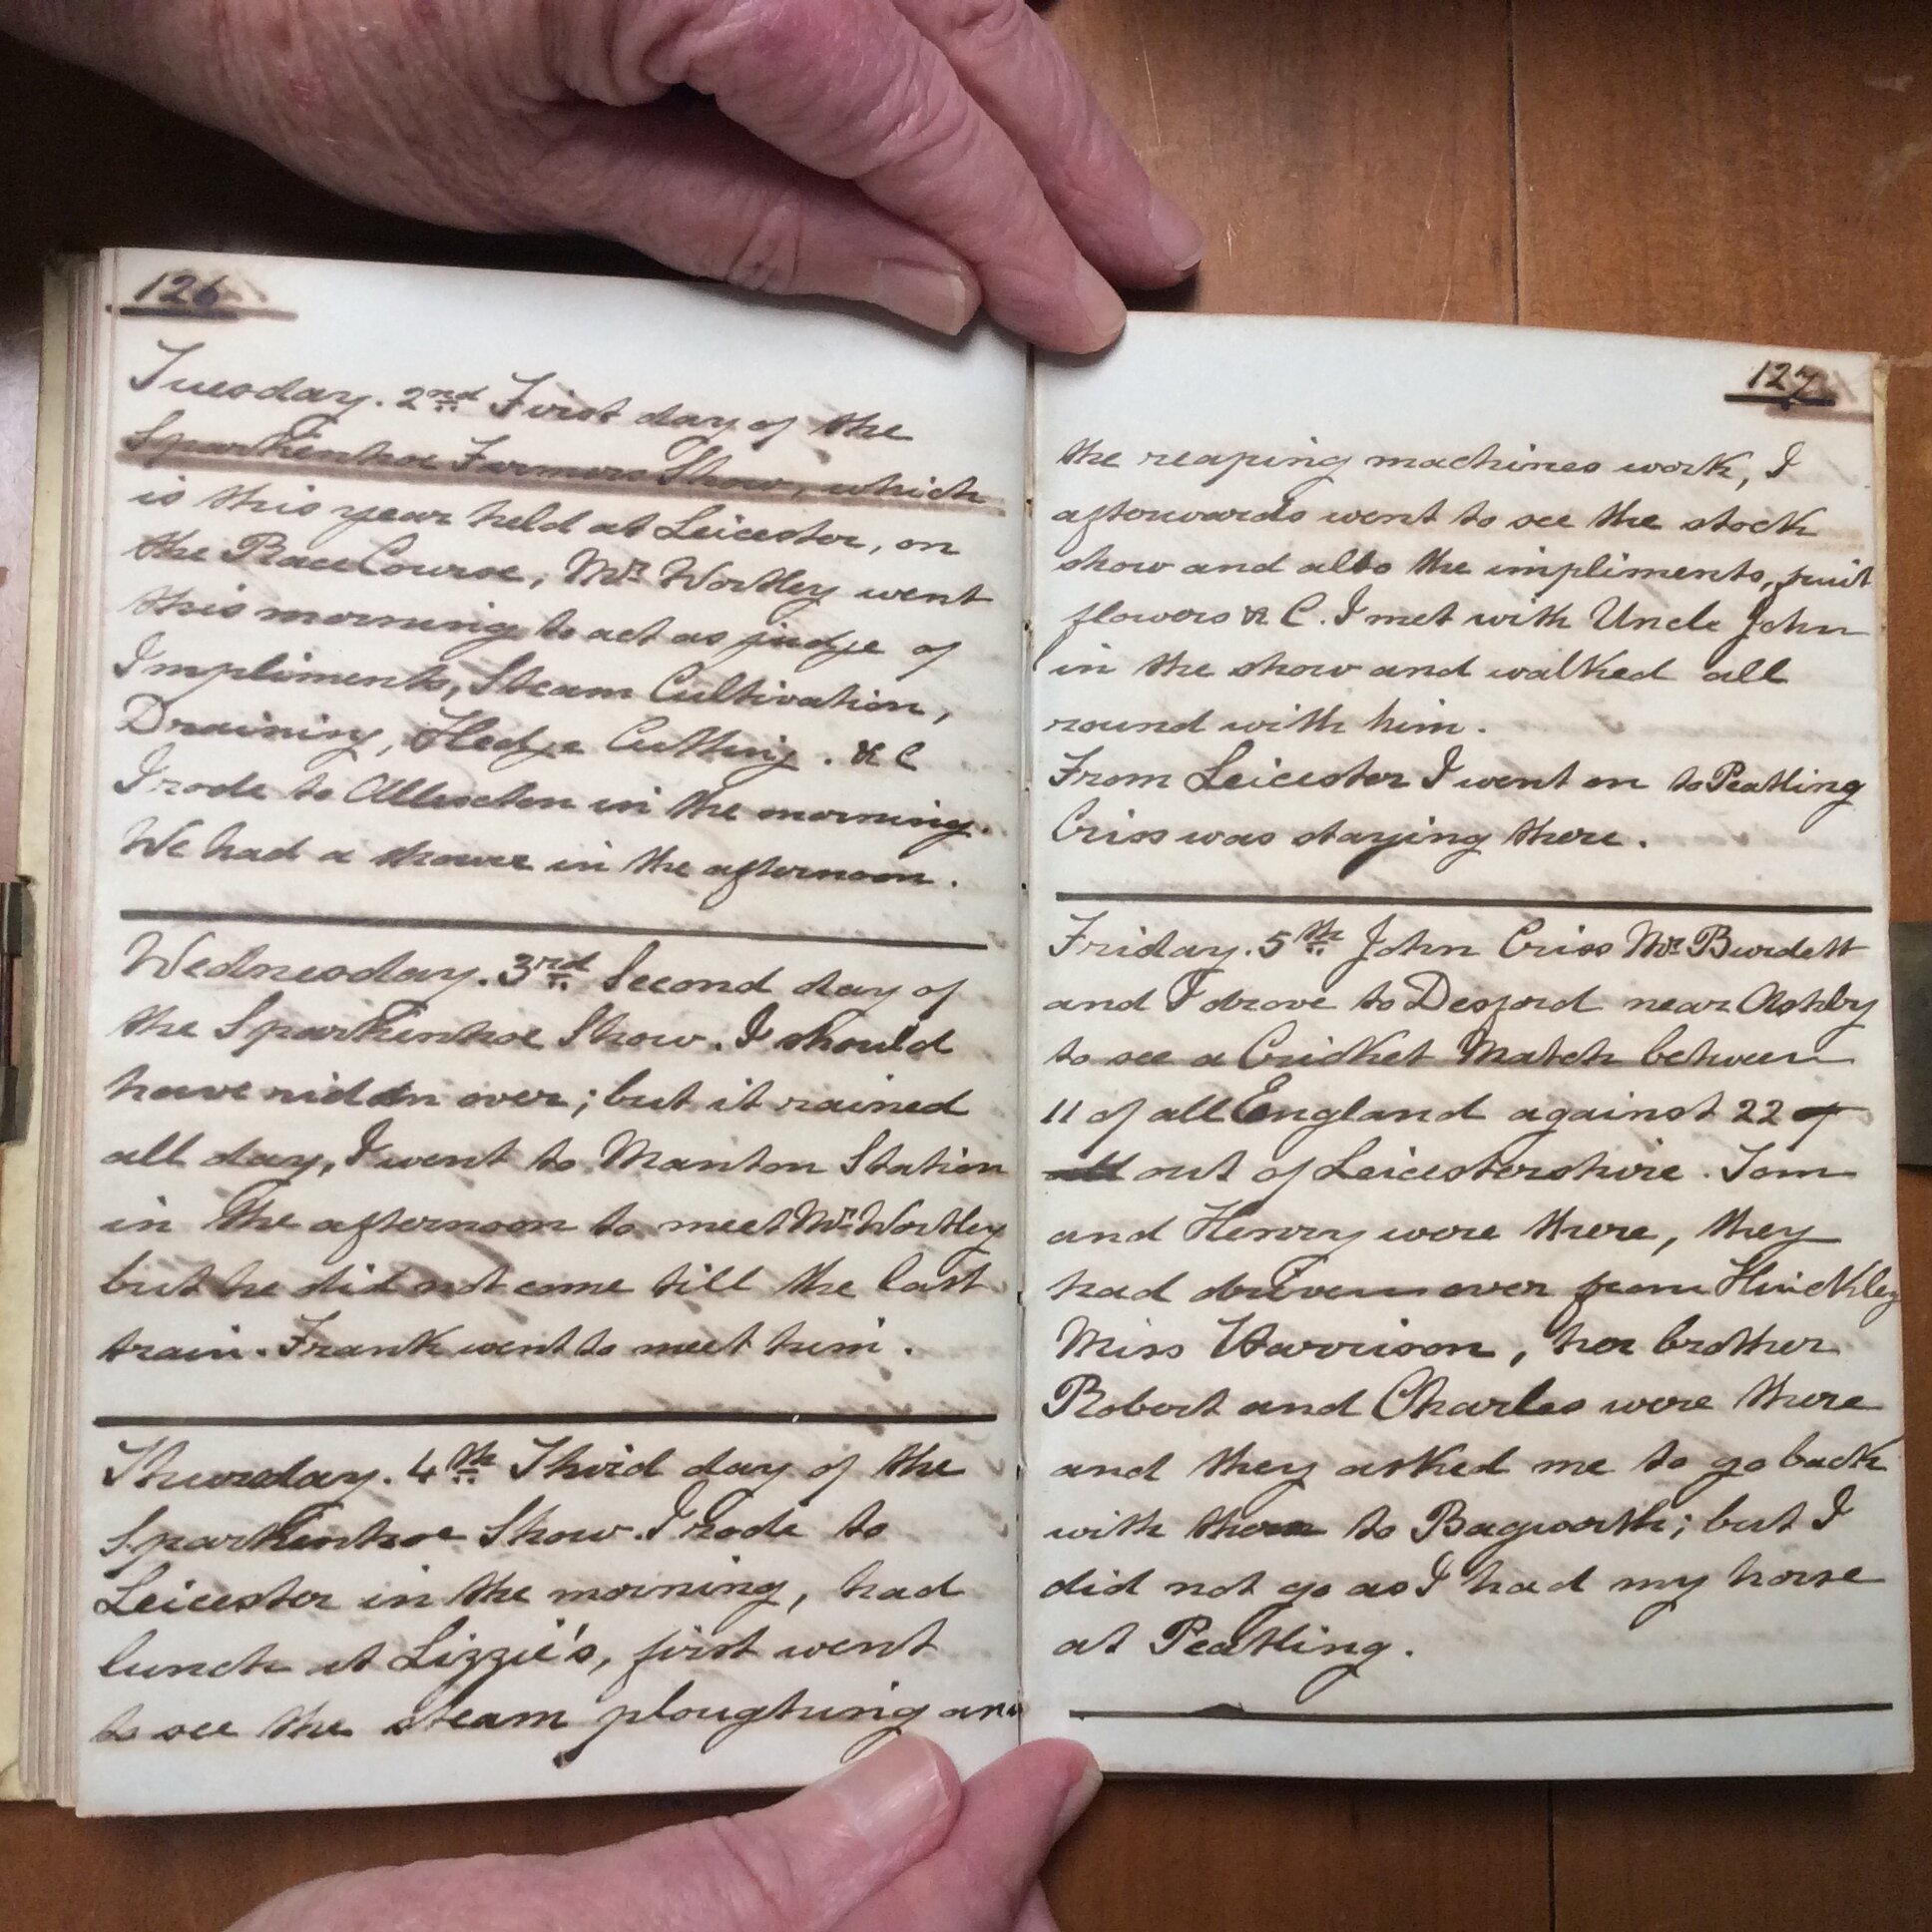 126
Tuesday. 2nd First day of the
Sparkenhoe Farmers Show, which
is this year held at Leicester, on
the Race Course, Mr Wortley went
this morning to act as judge of
Impliments, Steam Cultivation,
Draining, Hedge Cutting. & C
I rode to Allexton in the morning.
We had a shower in the afternoon.
Wednesday. 3rd Second day of
the Sparkenhoe Show. I should
have ridden over; but it rained
all day, I went to Manton Station
in the afternoon to meet Mr Wortley
but he did not come till the last
train. Frank went to meet him.
Thursday. 4th Third day of the
Sparkenhoe Show. I rode to
Leicester in the morning, had
lunch at Lizzie's, first went
to see the steam ploughing and
127
the reaping machines work, I
afterwards went to see the stock
show and also the impliments, fruit
flowers & C. I met with Uncle John
in the show and walked all
round with him.
From Leicester I went on to Peatling
Criss was staying there.
Friday. 5th John Criss Mr Burdett
and I drove to Desford near Ashby
to see a Cricket Match between
11 of all England against 22 of
all out of Leicestershire. Tom
and Henry were there, they
had driven over from Hinckley
Miss Harrison, her brother
Robert and Charles were there
and they asked me to go back
with them to Bagworth; but I
did not go as I had my horse
at Peatling.